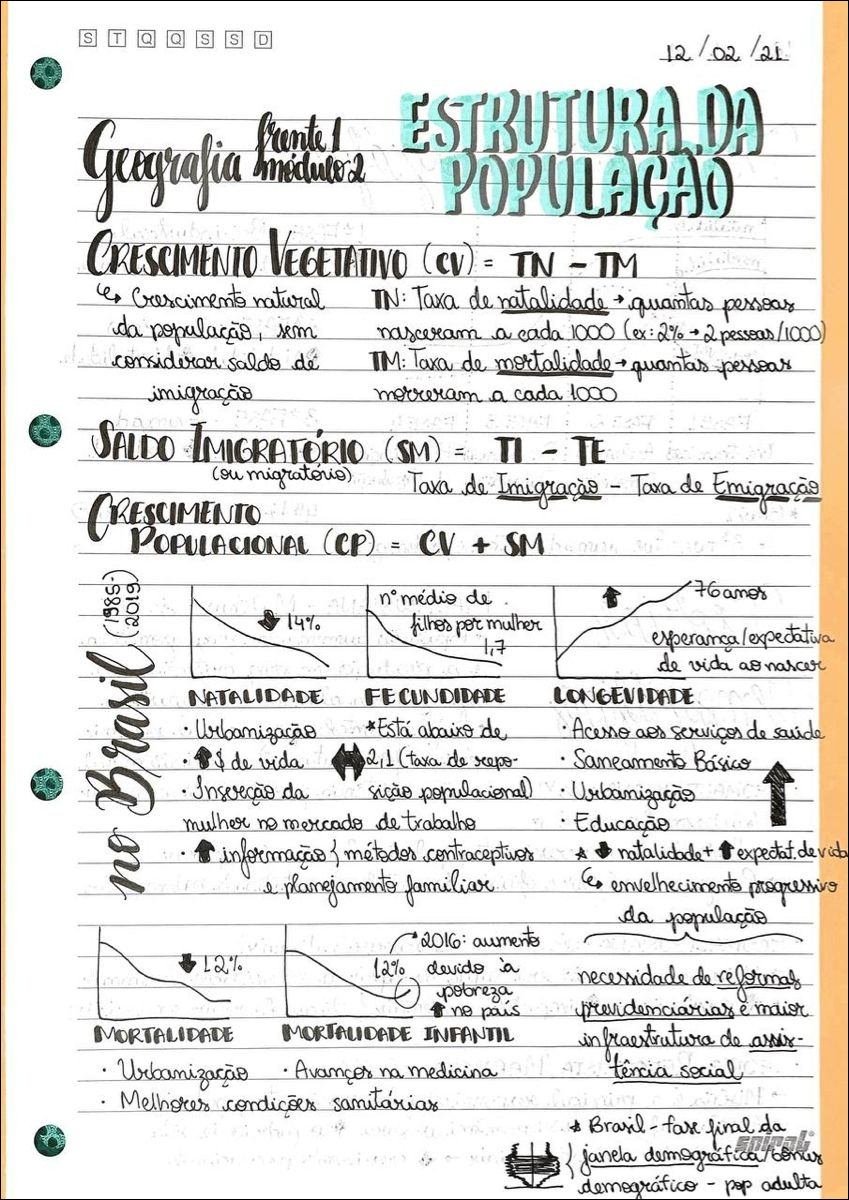 S T Q Q S S D
12/02/21
Geografia frente 1
módulo 2
ESTRUTURA DA
POPULAÇÃO
CRESCIMENTO VEGETATIVO (CV) = TN - TM
↳ Crescimento natural
da população, sem
considerar saldo de
imigração
TN: Taxa de natalidade → quantas pessoas
nasceram a cada 1000 (ex: 2% → 2 pessoas/1000)
TM: Taxa de mortalidade → quantas pessoas
morreram a cada 1000
SALDO IMIGRATÓRIO (SM) = TI - TE
(ou migratório)
Taxa de Imigração - Taxa de Emigração
CRESCIMENTO
POPULACIONAL (CP) = CV + SM
no Brasil (1985-
2019)
↓ 14%
NATALIDADE
· Urbanização
· ↑$ de vida
· Inserção da
mulher no mercado de trabalho
· ↑ informação } métodos contraceptivos
e planejamento familiar
nº médio de
filhos por mulher
1,7
FECUNDIDADE
*Está abaixo de
2,1 (taxa de repo-
sição populacional)
↑ 76 anos
esperança/expectativa
de vida ao nascer
LONGEVIDADE
· Acesso aos serviços de saúde
· Saneamento Básico
· Urbanização
· Educação
* ↓ natalidade + ↑ expectat. de vida
↳ envelhecimento progressivo
da população
necessidade de reformas
previdenciárias e maior
infraestrutura de assis-
tência social
↓ 12%
MORTALIDADE
· Urbanização
· Melhores condições sanitárias
12%
2016: aumento
devido à
pobreza
↑ no país
MORTALIDADE INFANTIL
· Avanços na medicina
* Brasil - fase final da
janela demográfica/bônus
demográfico - pop adulta
SNIPAL